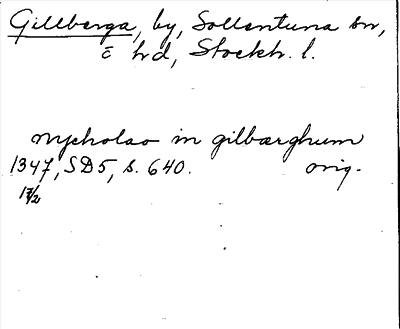 Gillberga, by, Sollentuna sn,
o hd, Stockh. l.
nycholao in gilbærghum
1347, SD5, s. 640. orig.
17/2